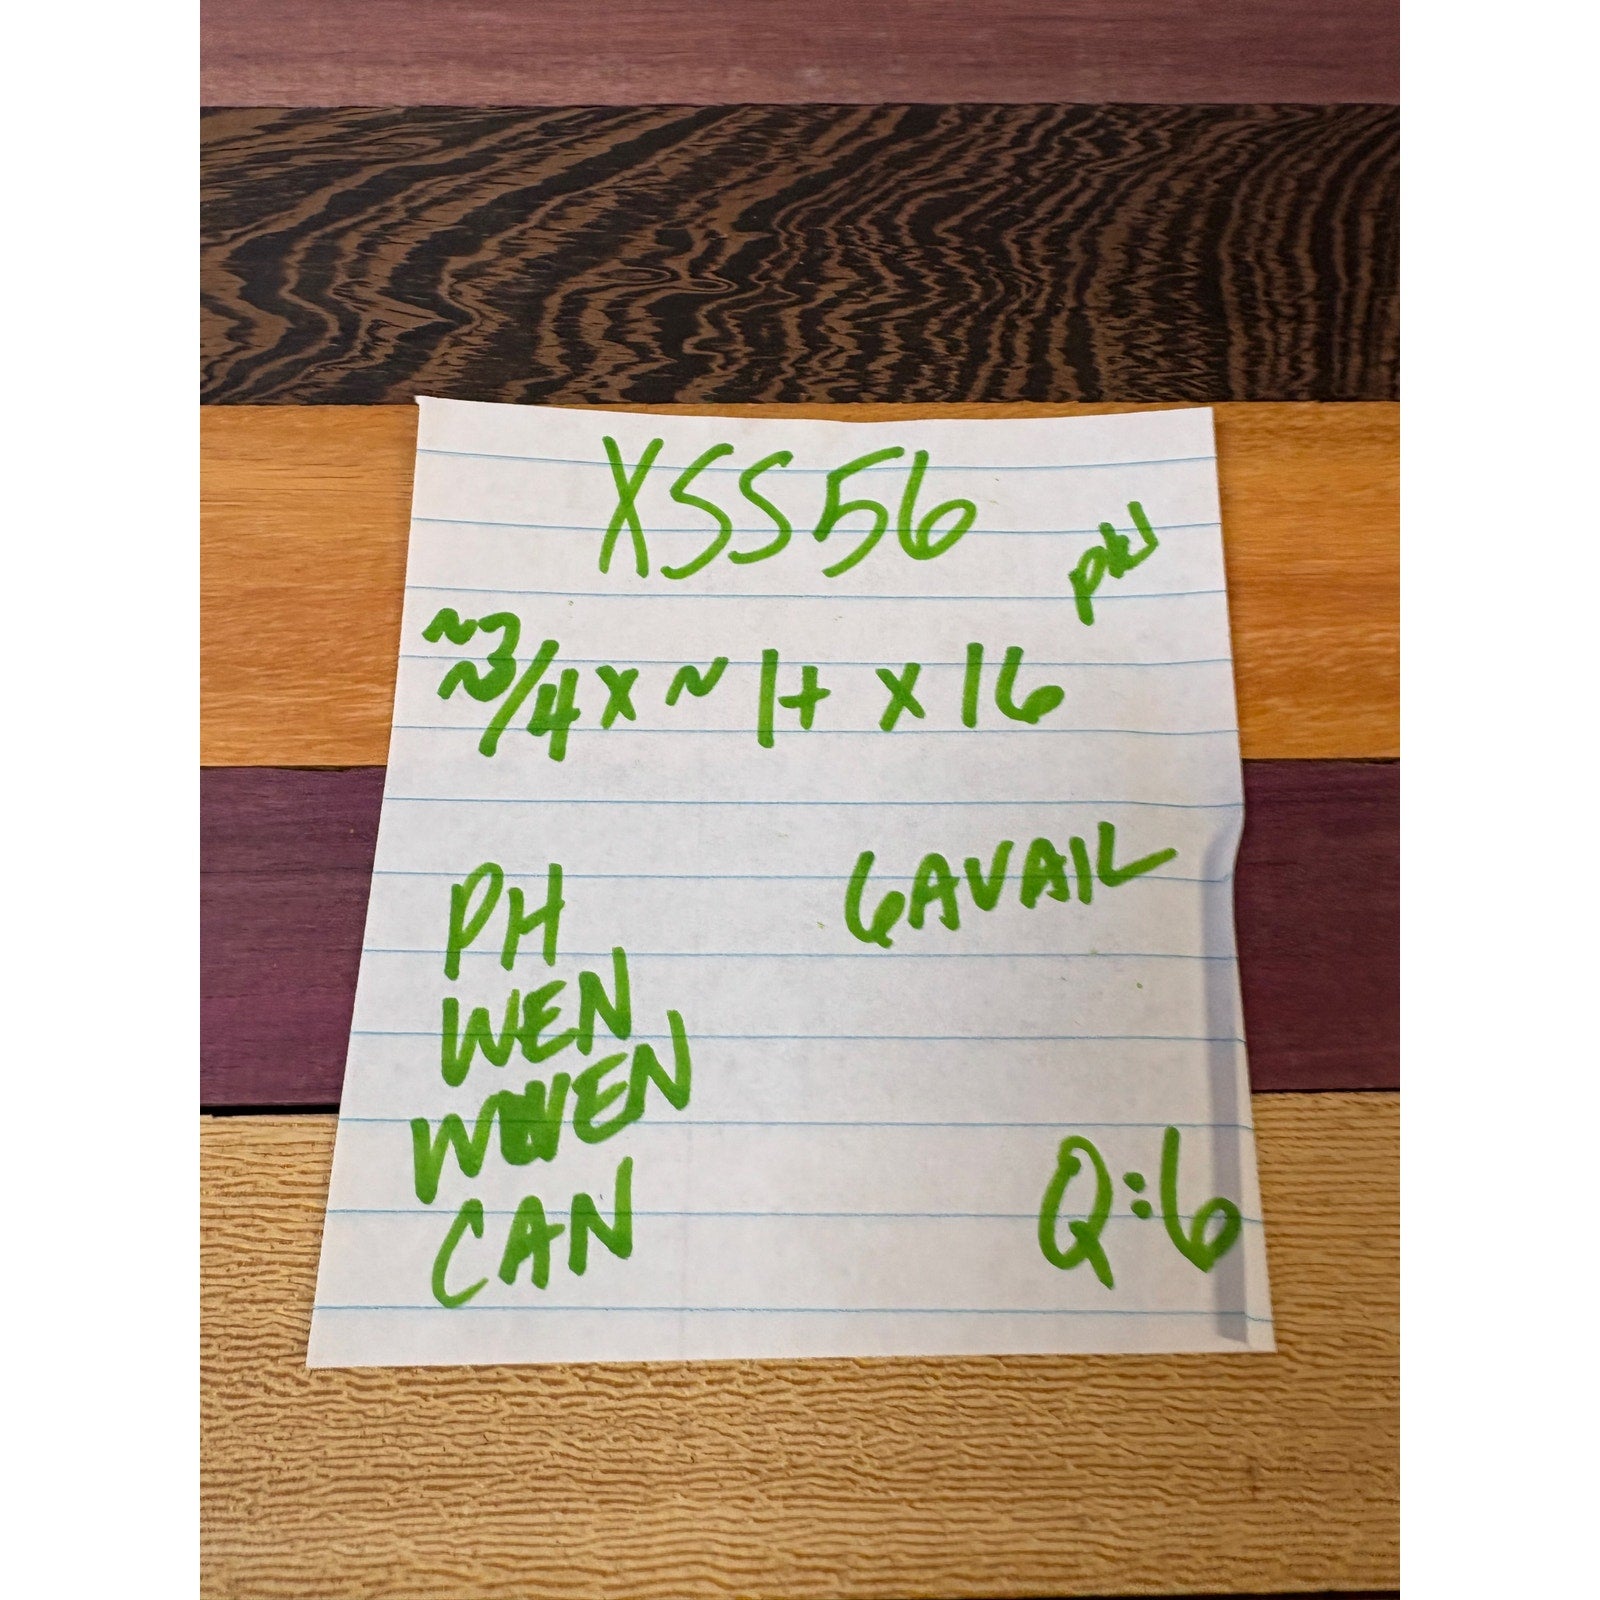 XSS56
~~3/4 x ~ 1+ x 16
6 AVAIL
PH
WEN
WWEN
CAN
Q:6